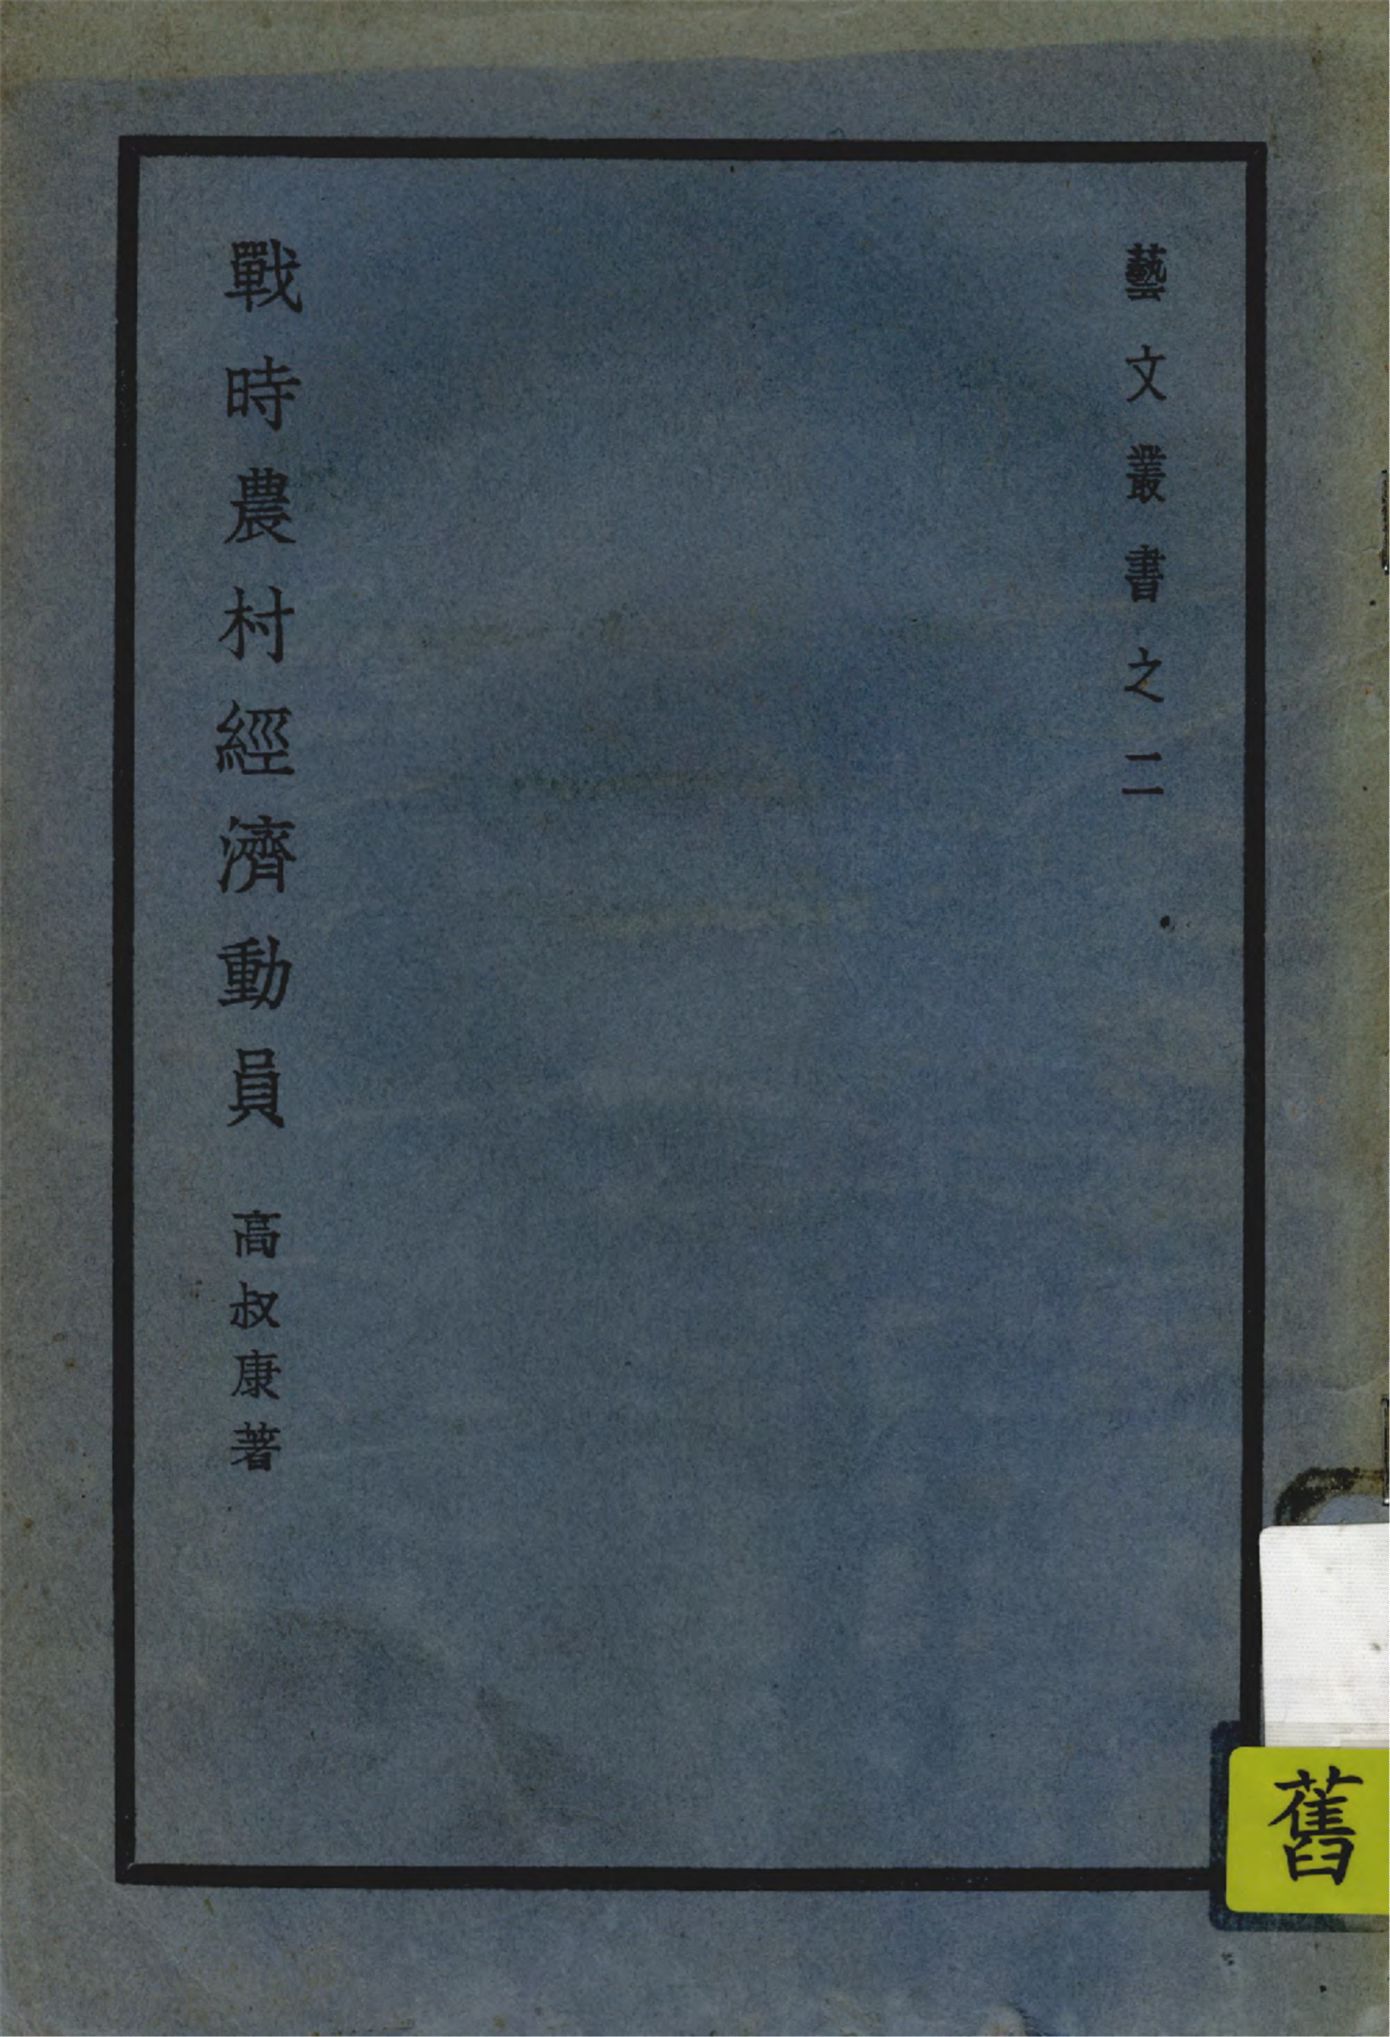 藝文叢書之二
戰時農村經濟動員 高叔康著
舊